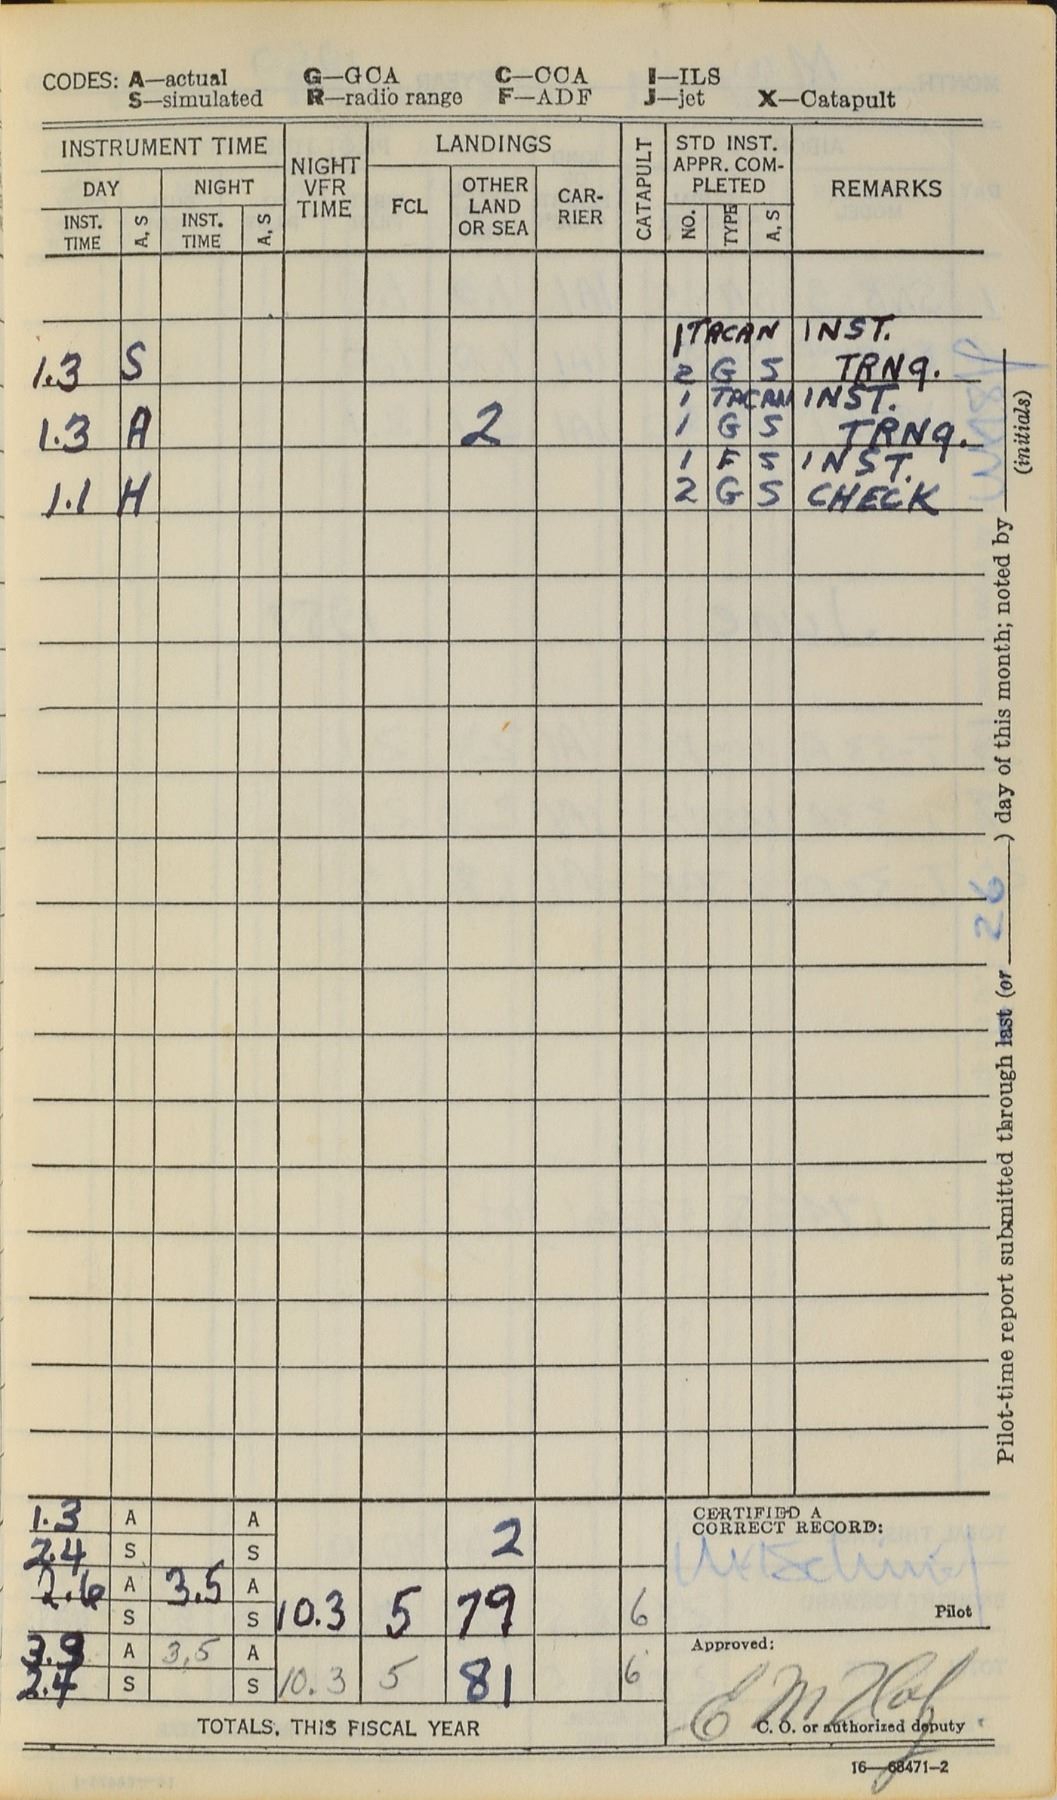 CODES: A—actual G—GCA C—CCA I—ILS
S—simulated R—radio range F—ADF J—jet X—Catapult
INSTRUMENT TIME
DAY NIGHT
INST. TIME A, S INST. TIME A, S
NIGHT VFR TIME
LANDINGS
FCL OTHER LAND OR SEA CAR-RIER
CATAPULT
STD INST. APPR. COM-PLETED
NO. TYPE A, S
REMARKS
1 TACAN INST.
1.3 S 2 G S TRNG.
1 TACAN INST.
1.3 A 2 1 G S TRNG.
1 F S INST.
1.1 H 2 G S CHECK
1.3 A A
2.4 S 2 S
2.6 A 3.5 A
S S 10.3 5 79 6
3.9 A 3.5 A
2.4 S S 10.3 5 81 6
TOTALS, THIS FISCAL YEAR
CERTIFIED A
CORRECT RECORD:
Pilot
Approved:
C. O. or authorized deputy
16—68471-2
Pilot-time report submitted through last (or 26) day of this month; noted by
(initials)